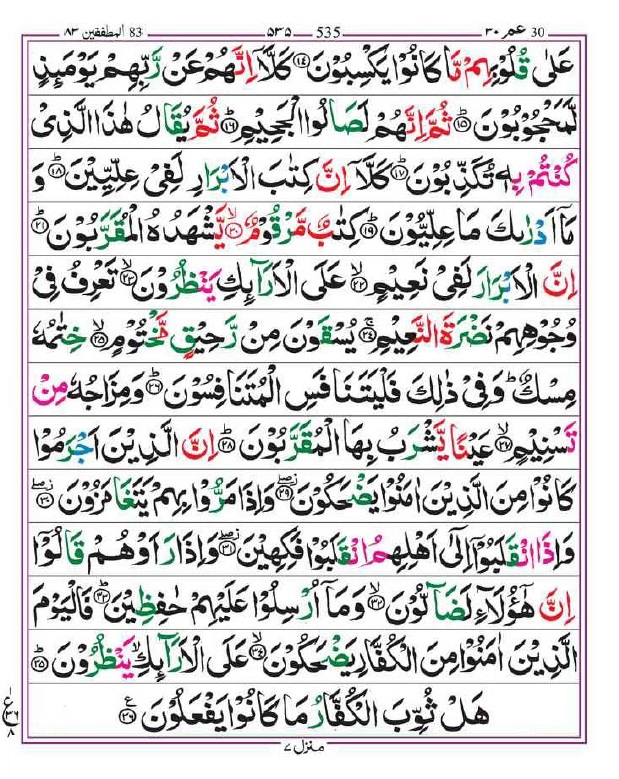 30 عم ۳۰ 535 ۵۳۵ 83 المطففين ۸۳
عَلٰى قُلُوْبِهِمْ مَّا كَانُوْا يَكْسِبُوْنَ ﴿۱۴﴾ كَلَّاۤ اِنَّهُمْ عَنْ رَّبِّهِمْ يَوْمَىِٕذٍ
لَّمَحْجُوْبُوْنَؕ ﴿۱۵﴾ ثُمَّ اِنَّهُمْ لَصَالُوا الْجَحِيْمِؕ ﴿۱۶﴾ ثُمَّ يُقَالُ هٰذَا الَّذِىْ
كُنْتُمْ بِهٖ تُكَذِّبُوْنَؕ ﴿۱۷﴾ كَلَّاۤ اِنَّ كِتٰبَ الْاَبْرَارِ لَفِىْ عِلِّيِّيْنَؕ ﴿۱۸﴾ وَ
مَاۤ اَدْرٰىكَ مَا عِلِّيُّوْنَؕ ﴿۱۹﴾ كِتٰبٌ مَّرْقُوْمٌۙ ﴿۲۰﴾ يَّشْهَدُهُ الْمُقَرَّبُوْنَؕ ﴿۲۱﴾
اِنَّ الْاَبْرَارَ لَفِىْ نَعِيْمٍۙ ﴿۲۲﴾ عَلَى الْاَرَآىِٕكِ يَنْظُرُوْنَۙ ﴿۲۳﴾ تَعْرِفُ فِىْ
وُجُوْهِهِمْ نَضْرَةَ النَّعِيْمِۚ ﴿۲۴﴾ يُسْقَوْنَ مِنْ رَّحِيْقٍ مَّخْتُوْمٍۙ ﴿۲۵﴾ خِتٰمُهٗ
مِسْكٌؕ وَفِىْ ذٰلِكَ فَلْيَتَنَافَسِ الْمُتَنَافِسُوْنَؕ ﴿۲۶﴾ وَمِزَاجُهٗ مِنْ
تَسْنِيْمٍۙ ﴿۲۷﴾ عَيْنًا يَّشْرَبُ بِهَا الْمُقَرَّبُوْنَؕ ﴿۲۸﴾ اِنَّ الَّذِيْنَ اَجْرَمُوْا
كَانُوْا مِنَ الَّذِيْنَ اٰمَنُوْا يَضْحَكُوْنَؗۖ ﴿۲۹﴾ وَاِذَا مَرُّوْا بِهِمْ يَتَغَامَزُوْنَؗۖ ﴿۳۰﴾
وَاِذَا انْقَلَبُوْۤا اِلٰٓى اَهْلِهِمُ انْقَلَبُوْا فَكِهِيْنَؗۖ ﴿۳۱﴾ وَاِذَا رَاَوْهُمْ قَالُوْۤا
اِنَّ هٰٓؤُلَآءِ لَضَآلُّوْنَۙ ﴿۳۲﴾ وَمَاۤ اُرْسِلُوْا عَلَيْهِمْ حٰفِظِيْنَؕ ﴿۳۳﴾ فَالْيَوْمَ
الَّذِيْنَ اٰمَنُوْا مِنَ الْكُفَّارِ يَضْحَكُوْنَۙ ﴿۳۴﴾ عَلَى الْاَرَآىِٕكِۙ يَنْظُرُوْنَؕ ﴿۳۵﴾
هَلْ ثُوِّبَ الْكُفَّارُ مَا كَانُوْا يَفْعَلُوْنَ ﴿۳۶﴾
ع
منزل ۷